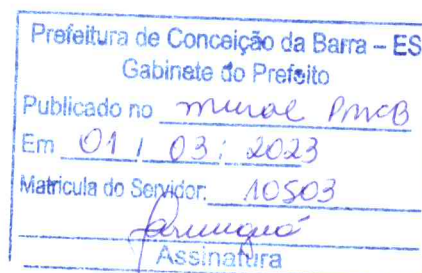 Prefeitura de Conceição da Barra – ES
Gabinete do Prefeito
Publicado no mural PMCB
Em 01 / 03 / 2023
Matricula do Servidor: 10503
Assinatura